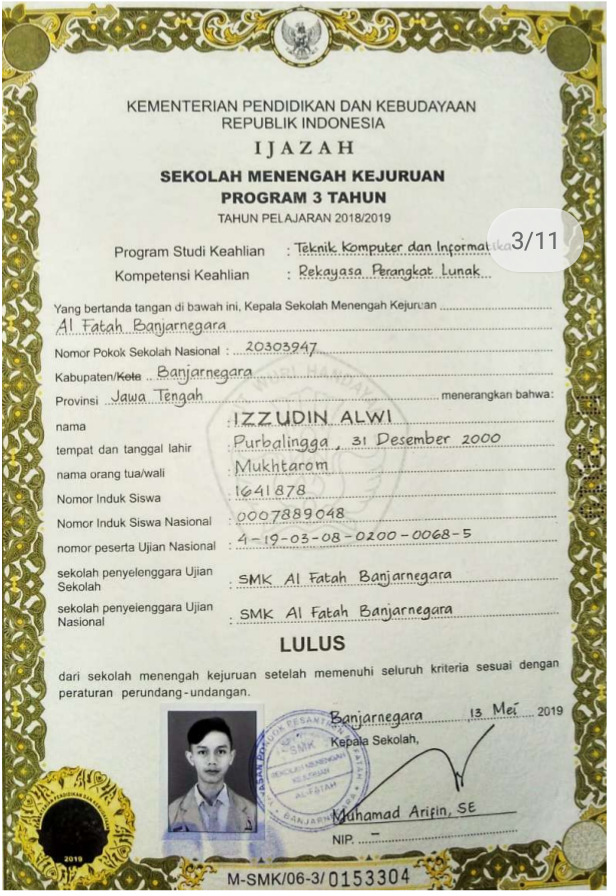 KEMENTERIAN PENDIDIKAN DAN KEBUDAYAAN
REPUBLIK INDONESIA
IJAZAH
SEKOLAH MENENGAH KEJURUAN
PROGRAM 3 TAHUN
TAHUN PELAJARAN 2018/2019
Program Studi Keahlian : Teknik Komputer dan Informatika
3/11
Kompetensi Keahlian : Rekayasa Perangkat Lunak
Yang bertanda tangan di bawah ini, Kepala Sekolah Menengah Kejuruan
Al Fatah Banjarnegara
Nomor Pokok Sekolah Nasional : 20303947
Kabupaten/Kota Banjarnegara
Provinsi Jawa Tengah menerangkan bahwa:
nama : IZZUDIN ALWI
tempat dan tanggal lahir : Purbalingga, 31 Desember 2000
nama orang tua/wali : Mukhtarom
Nomor Induk Siswa : 1641878
Nomor Induk Siswa Nasional : 0007889048
nomor peserta Ujian Nasional : 4-19-03-08-0200-0068-5
sekolah penyelenggara Ujian
Sekolah : SMK Al Fatah Banjarnegara
sekolah penyelenggara Ujian
Nasional : SMK Al Fatah Banjarnegara
LULUS
dari sekolah menengah kejuruan setelah memenuhi seluruh kriteria sesuai dengan
peraturan perundang-undangan.
Banjarnegara 13 Mei 2019
Kepala Sekolah,
SMK
SEKOLAH MENENGAH
KEJURUAN
AL-FATAH
Muhamad Arifin, SE
NIP. -
2019
M-SMK/06-3/0153304